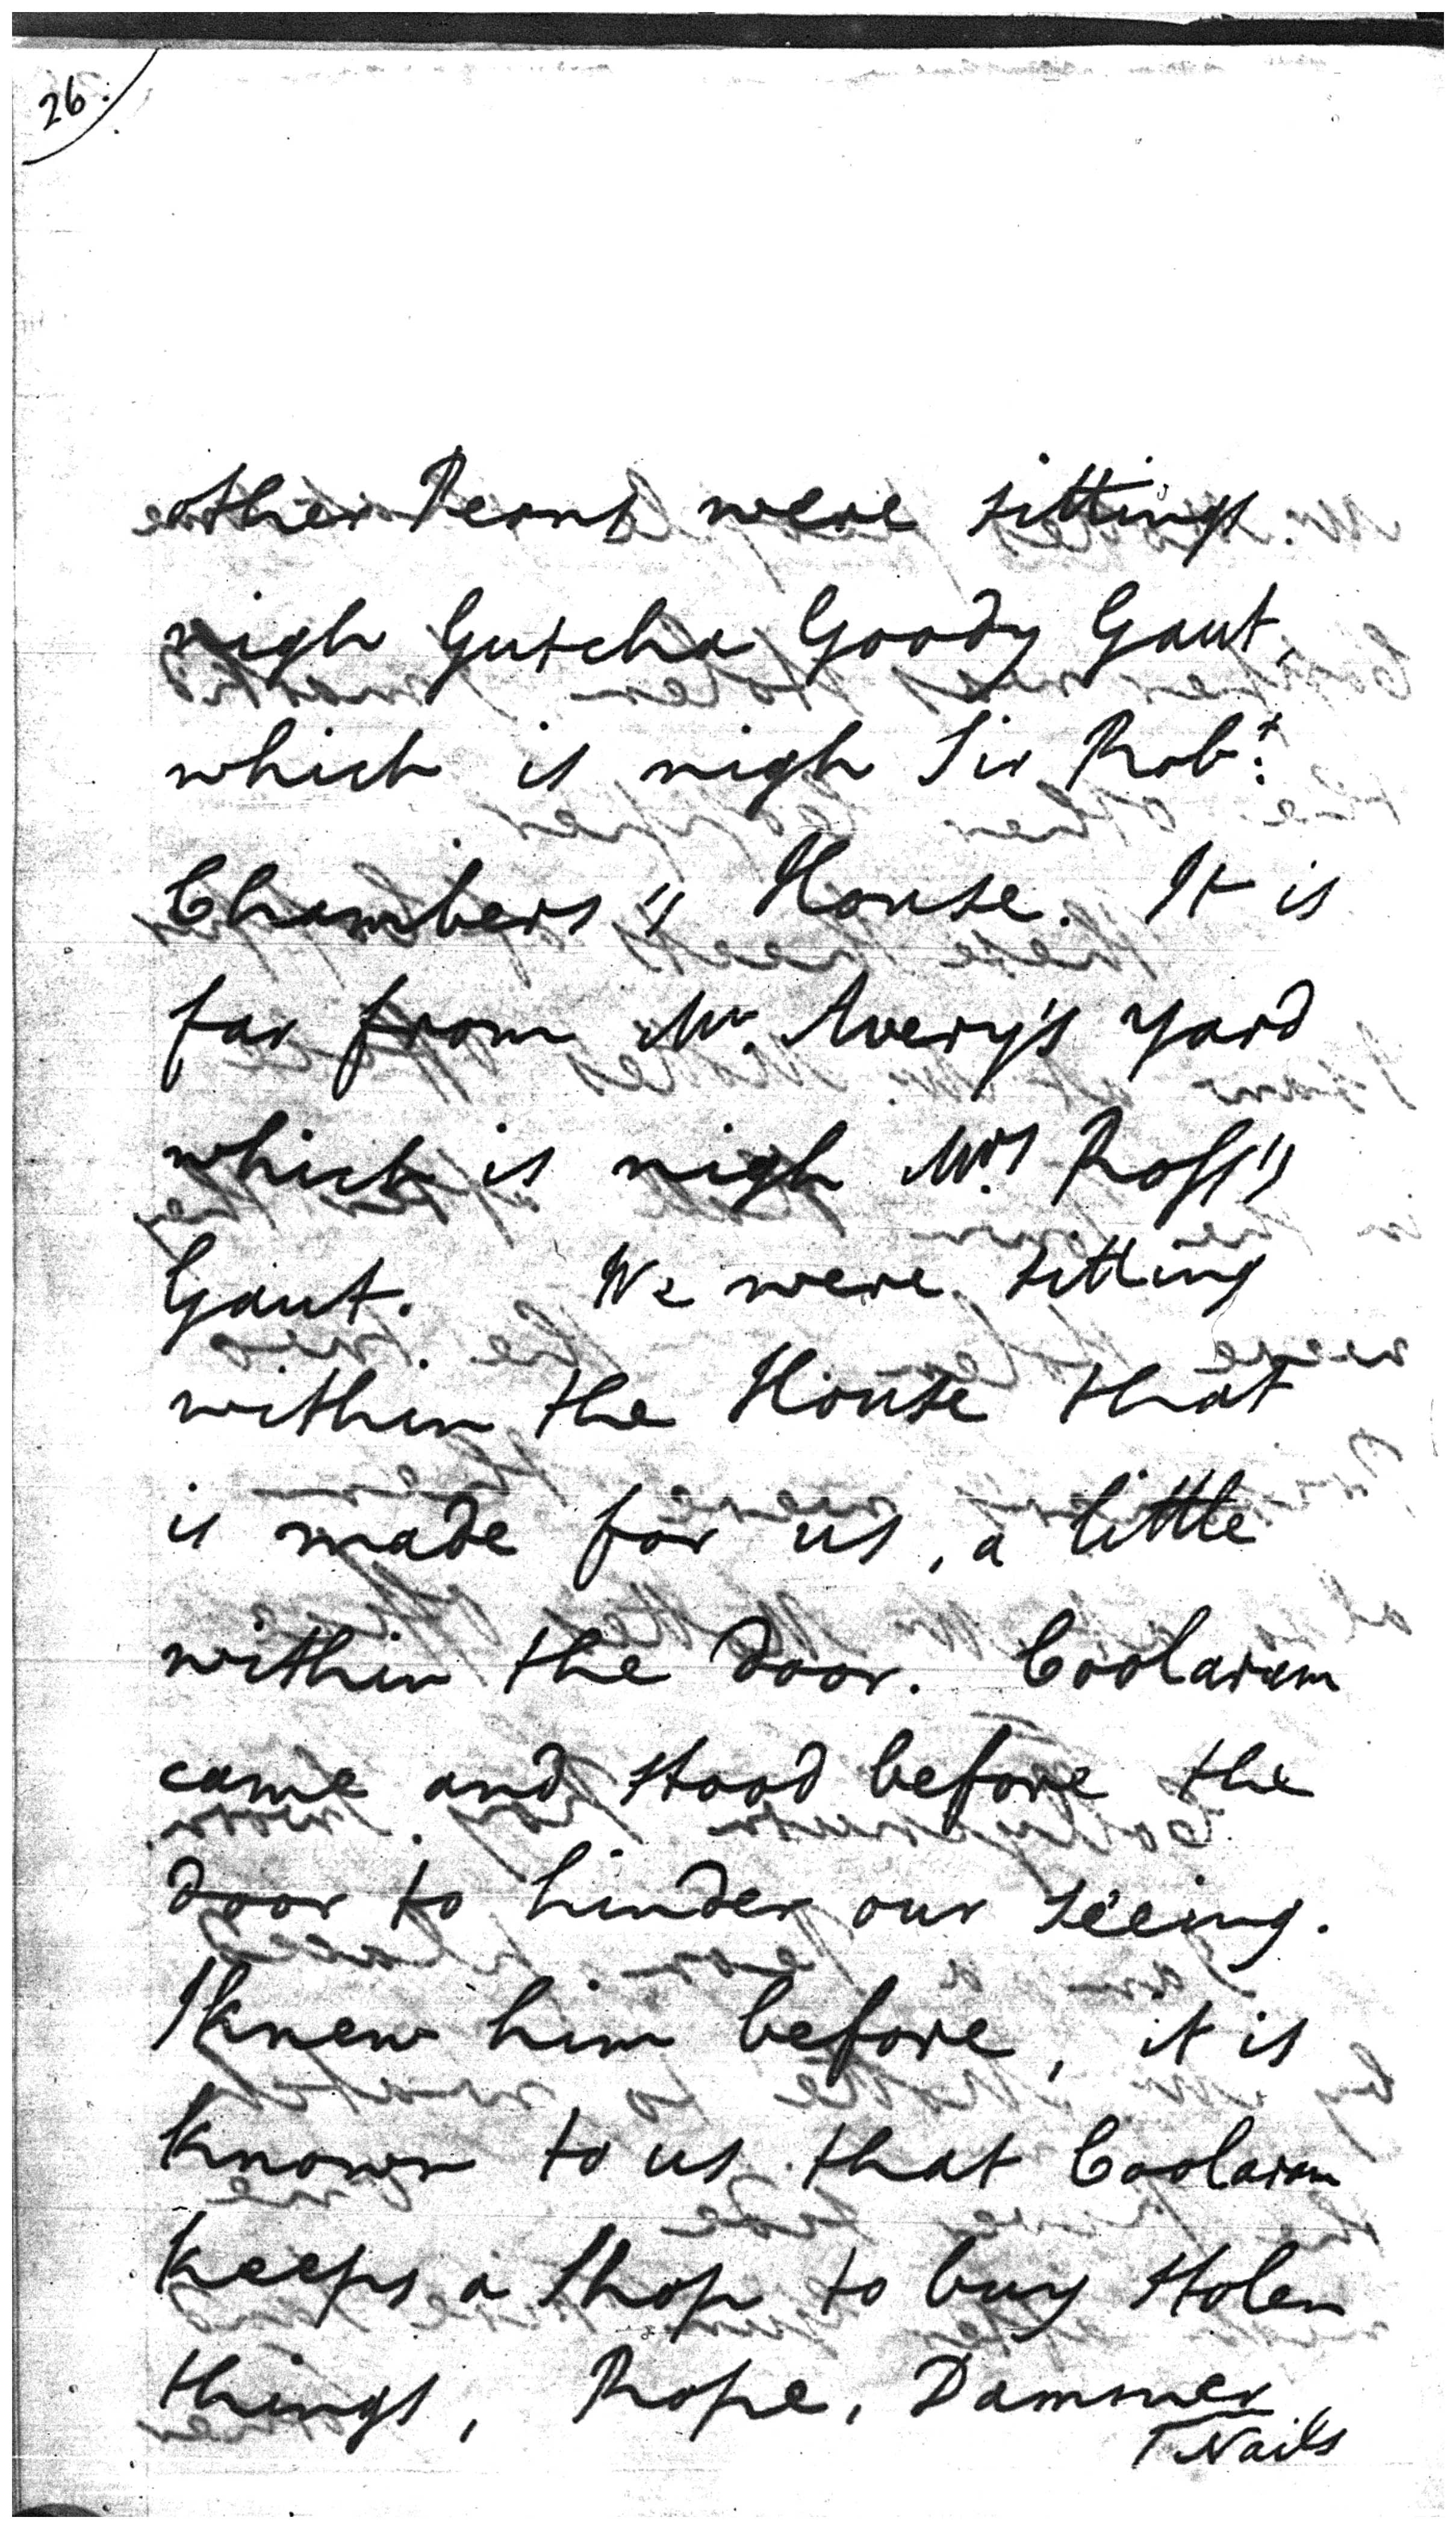 26.
other Peons were sitting
nigh Gutcha Goody Gaut,
which is nigh Sir Robt:
Chambers" House. It is
far from Mr. Avery's yard
which is nigh Mrs. Ross"
Gaut. We were sitting
within the House that
is made for us, a little
within the door. Coolaram
came and stood before the
door to hinder our seeing.
I knew him before, it is
known to us that Coolaram
keeps a Shop to buy stolen
things, Rope, Dammer,
Nails